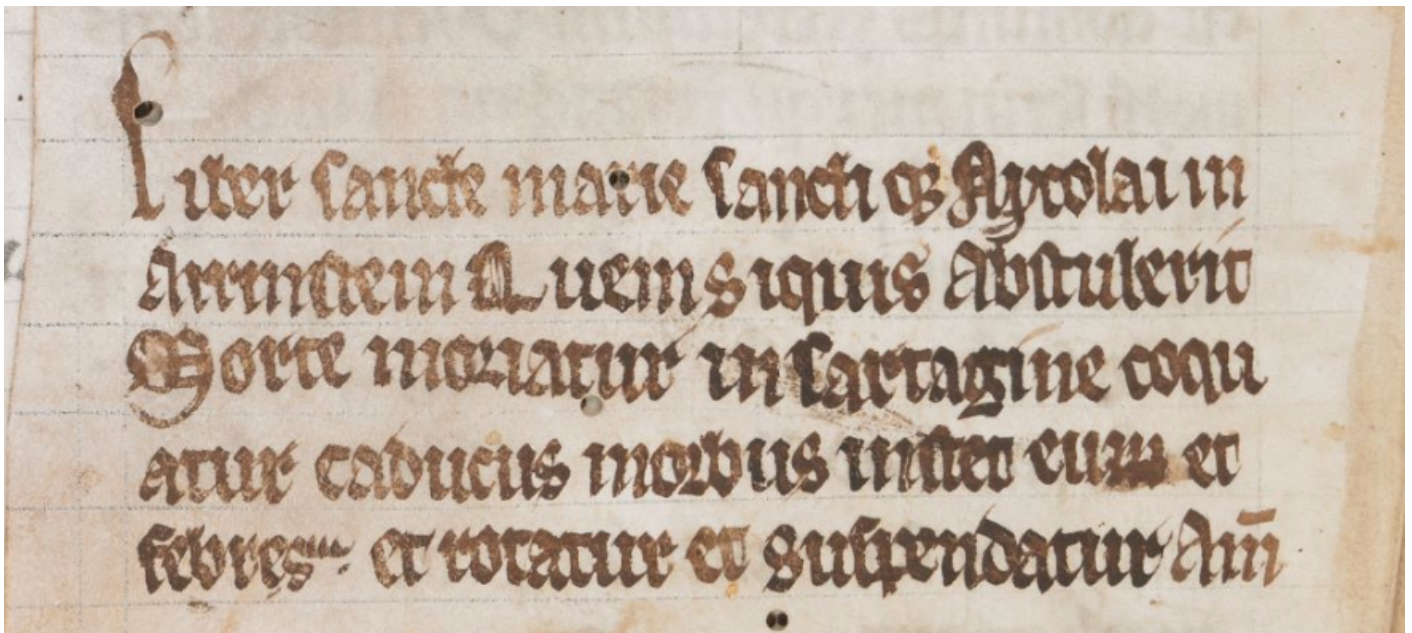 Liber sancte marie sancti qꝫ Nycolai in
Arrinstein Quem siquis Abstulerit
Morte moriatur in sartagine coqu
atur caducus morbus instet eum et
febres et rotatur et suspendatur Am̄